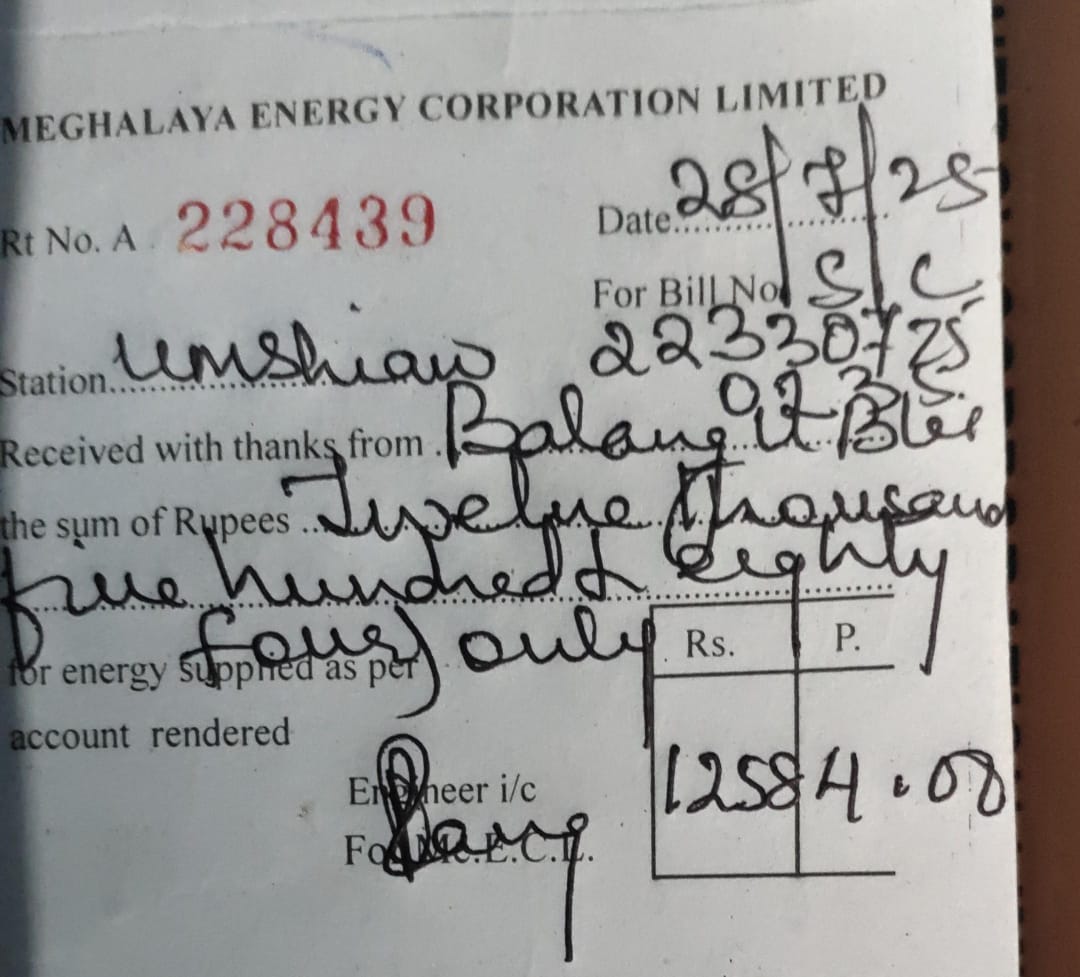 MEGHALAYA ENERGY CORPORATION LIMITED
Rt No. A 228439 Date 28/7/25
For Bill No S/C
Station Umshiaw 22330725
Received with thanks from Balang it Blei
the sum of Rupees Twelve Thousand
five hundred & eighty
four) only Rs. P.
for energy supplied as per
account rendered
Engineer i/c 12584.00
For Me.E.C.L.